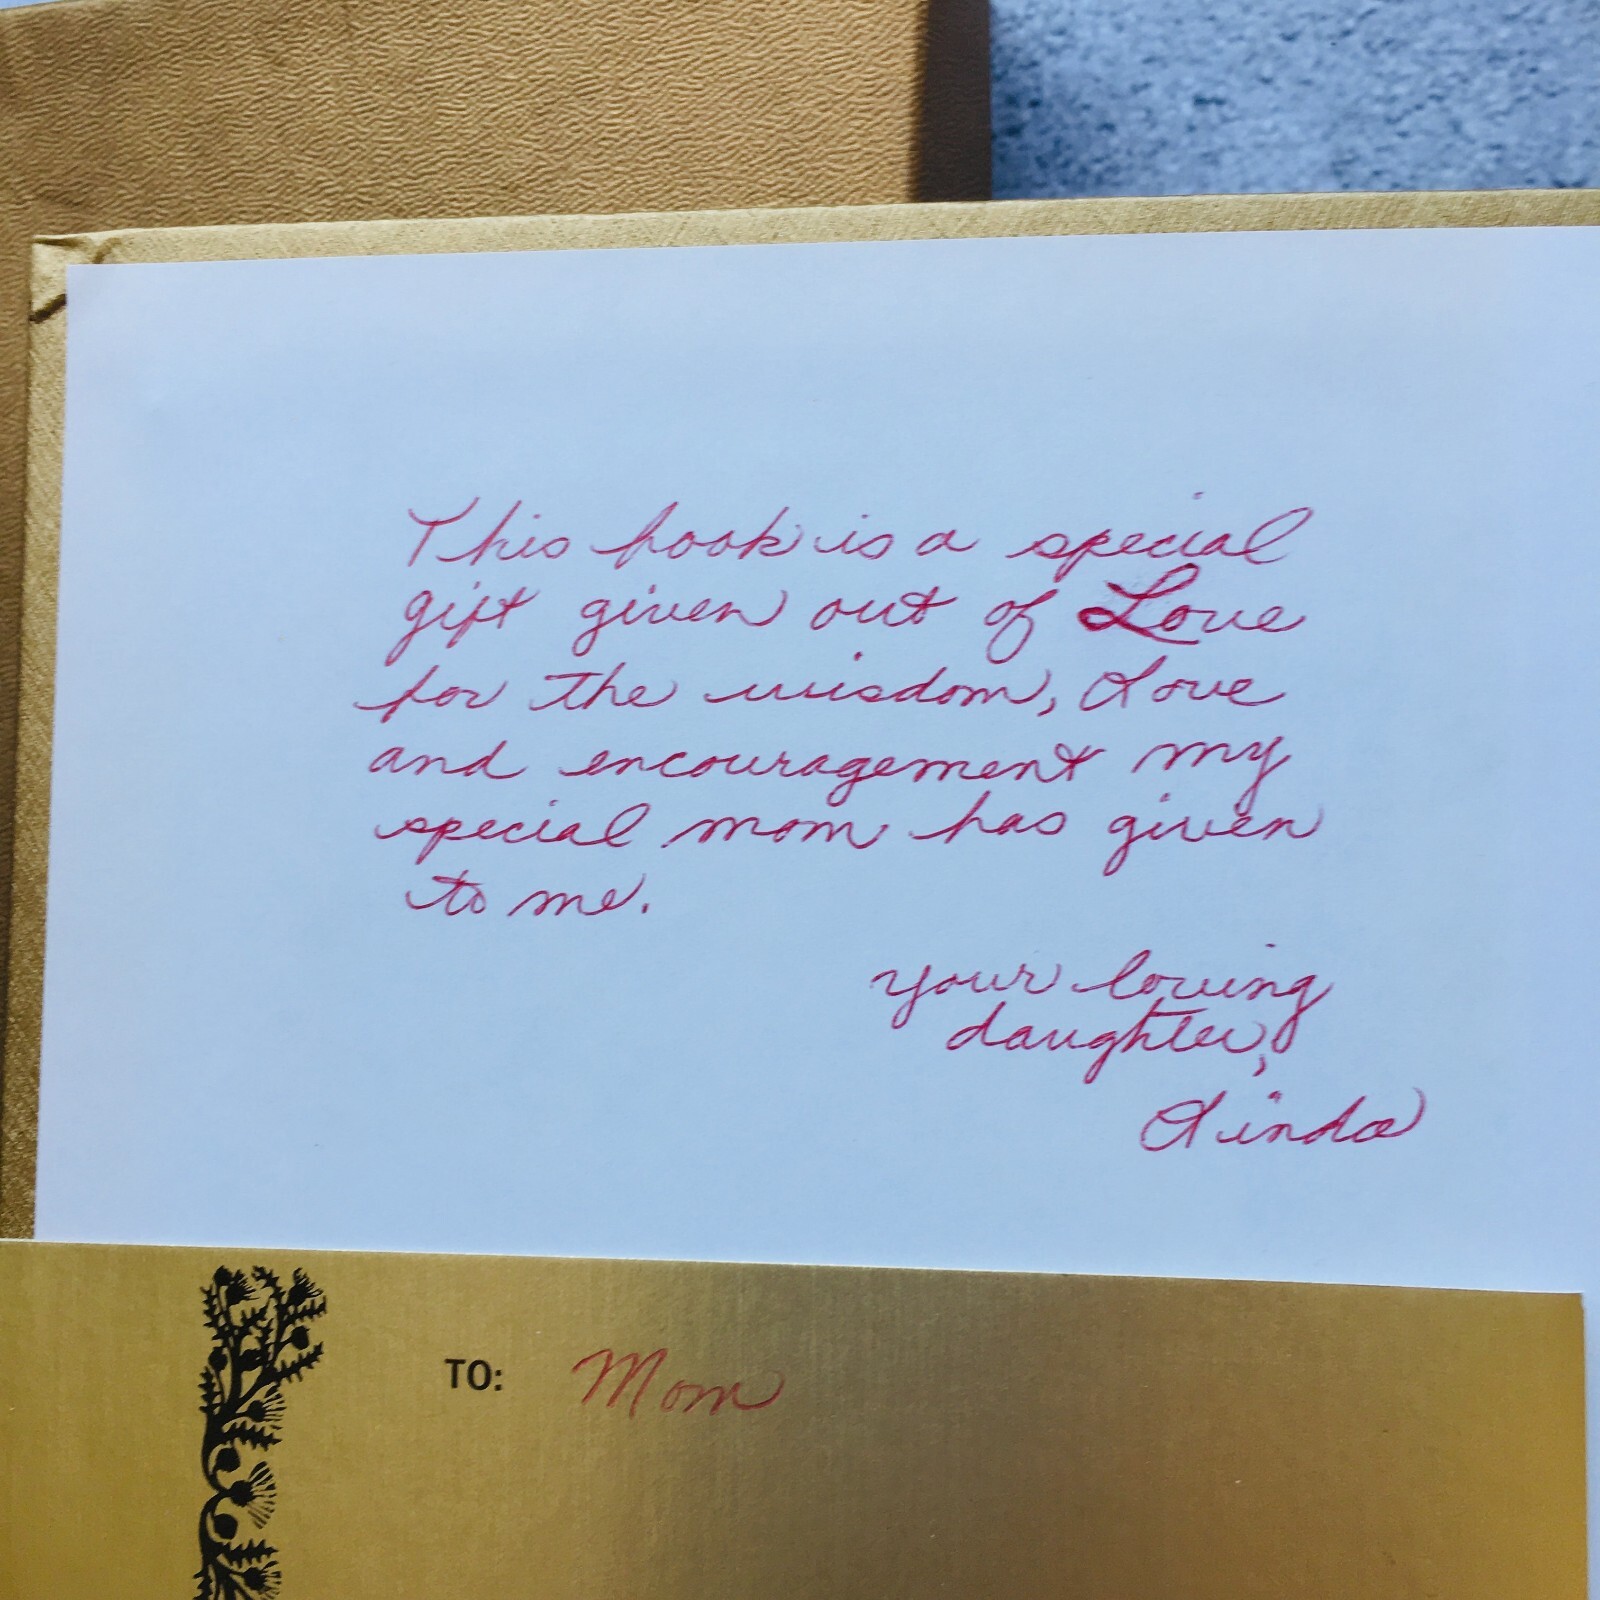 This book is a special
gift given out of Love
for the wisdom, Love
and encouragement my
special mom has given
to me.
your loving
daughter,
Linda
TO: Mom